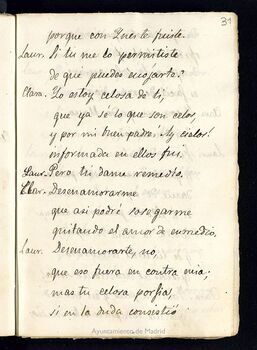 39
porque con Ines le fuiste.
Laur. Si tu me lo permitiste
de qué puedes enojarte?
Clara. Yo estoy celosa de ti,
que ya sé lo que son celos,
y por mi buen padre! Ay cielos!
informada en ellos fui.
Laur. Pero tu dame remedio.
Clar. Desenamorarme
que asi podré sosegarme
quitando el amor de en medio.
Laur. Desenamorarte, no,
que eso fuera en contra mia;
mas tu celosa porfia,
si en la duda consistió
Ayuntamiento de Madrid